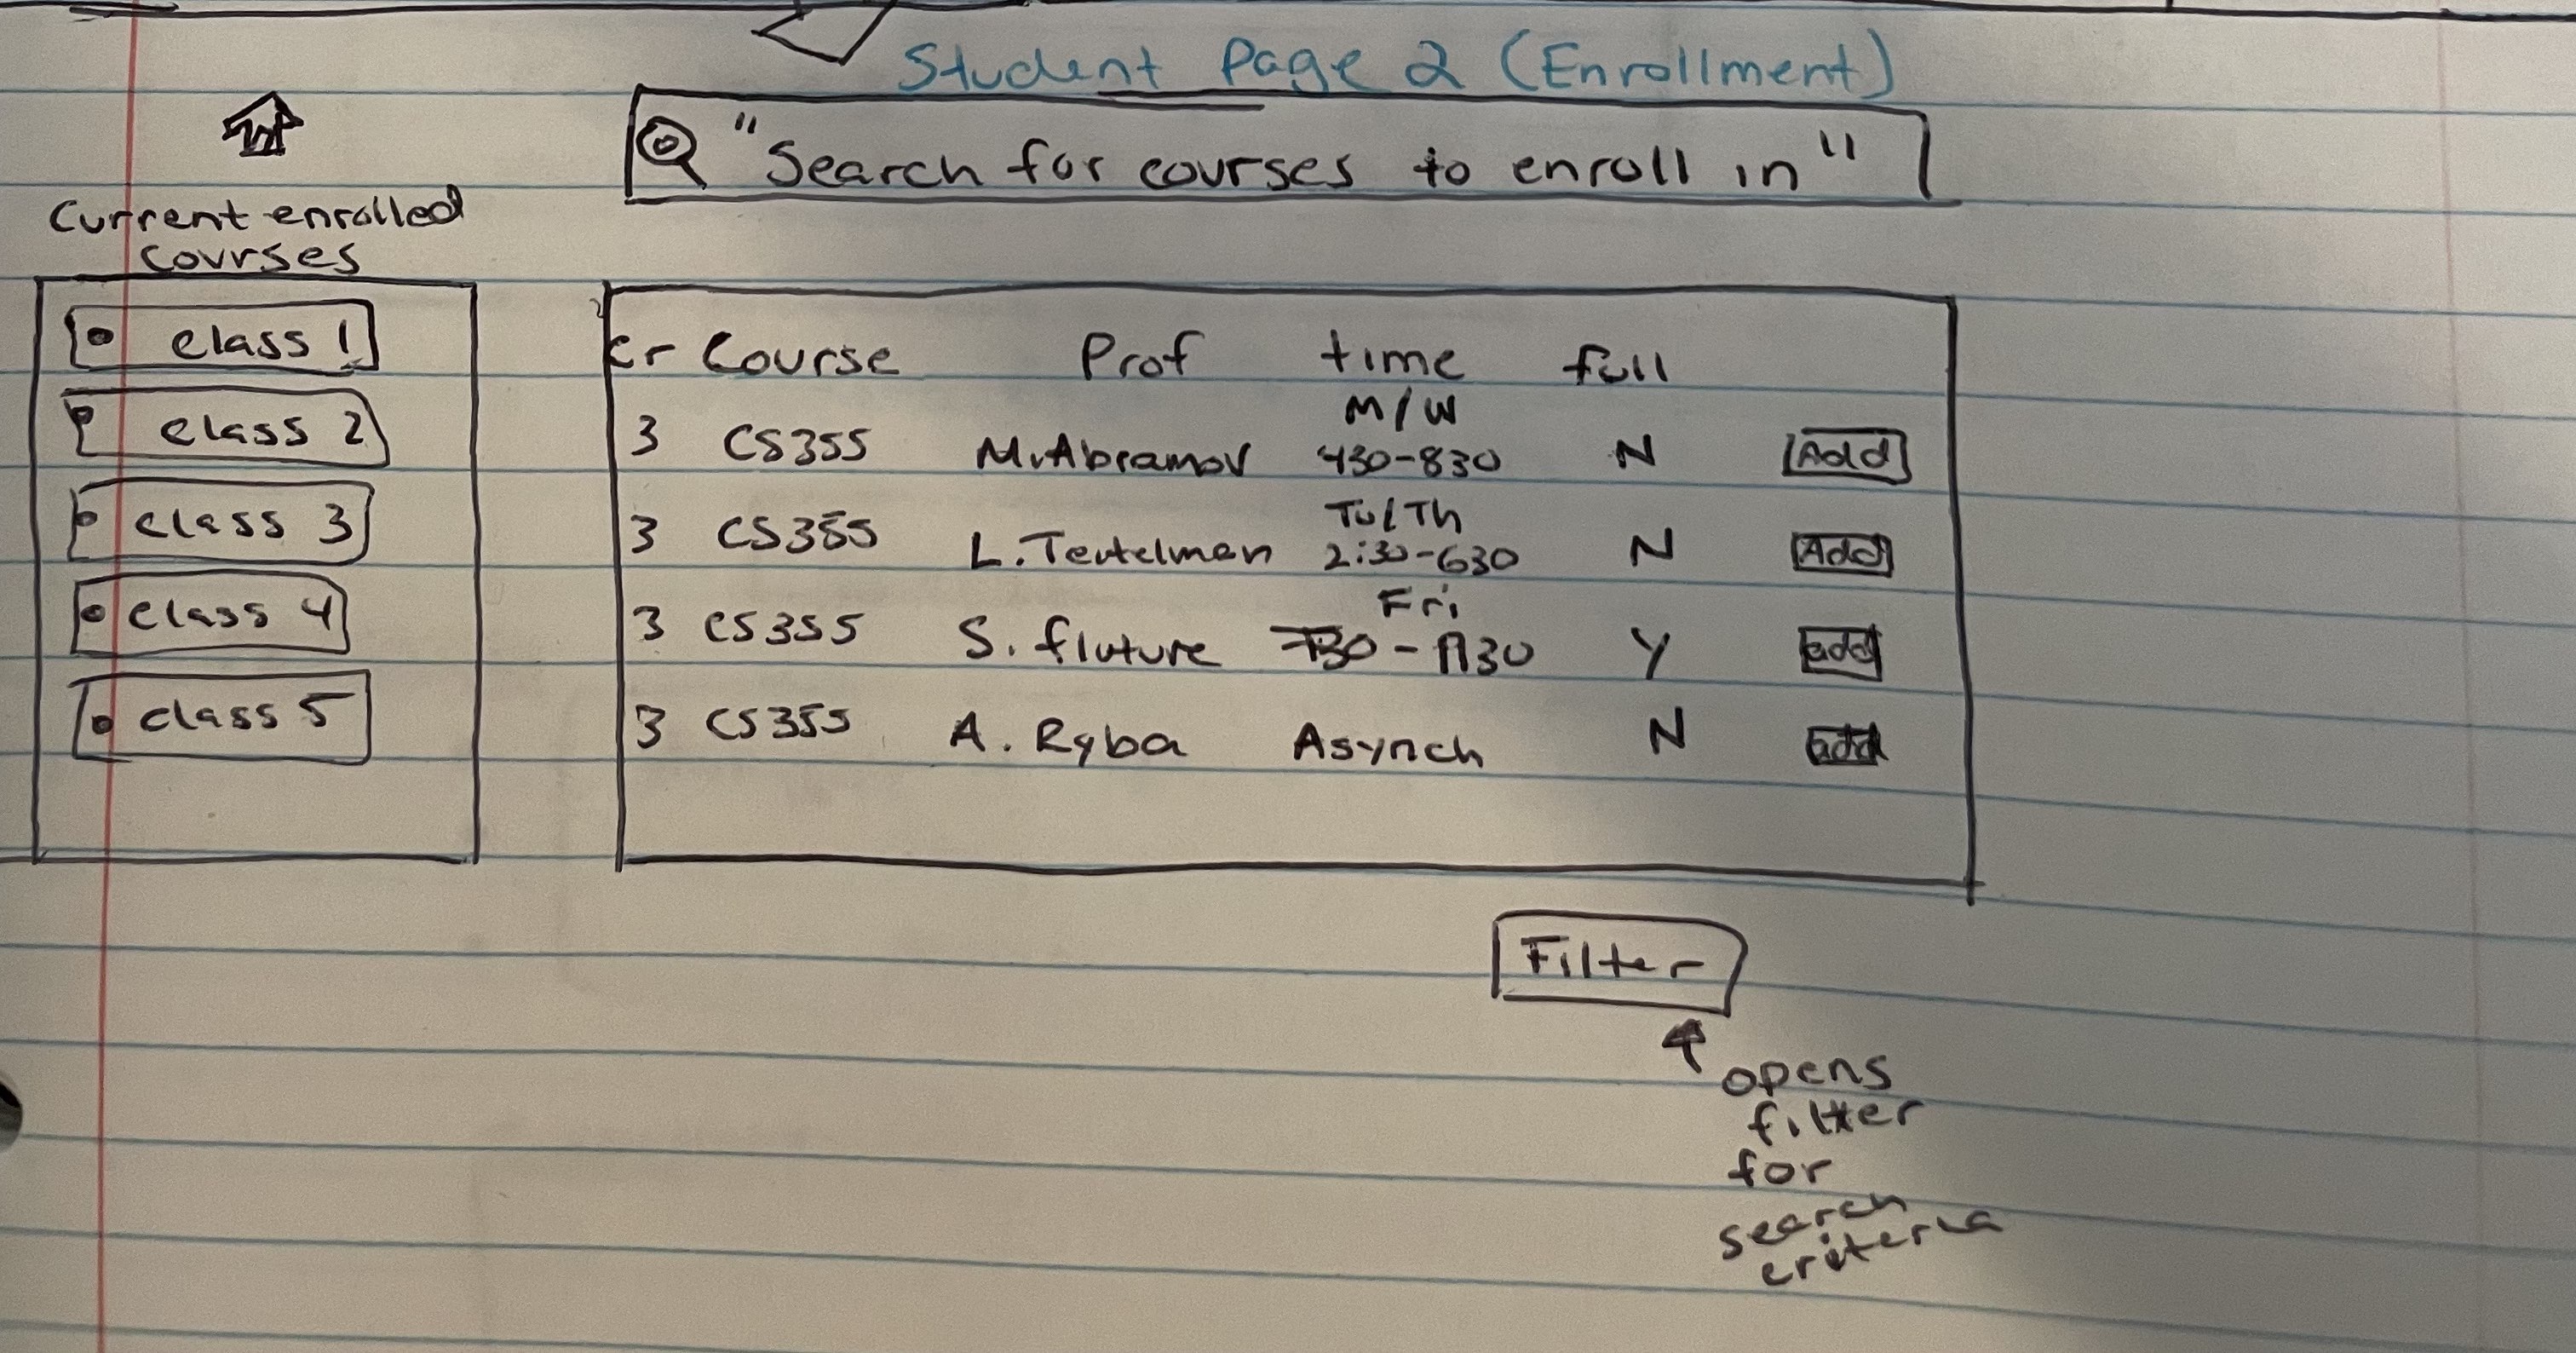 Student Page 2 (Enrollment)
"Search for courses to enroll in"
Current enrolled
courses
class 1
class 2
class 3
class 4
class 5
cr Course Prof time full
M/W
3 CS355 M.Abramov 430-830 N Add
Tu/Th
3 CS355 L.Teitelman 2:30-630 N Add
Fri
3 CS355 S. fluture 730 - 1130 Y add
3 CS355 A. Ryba Asynch N add
Filter
opens
filter
for
search
criteria